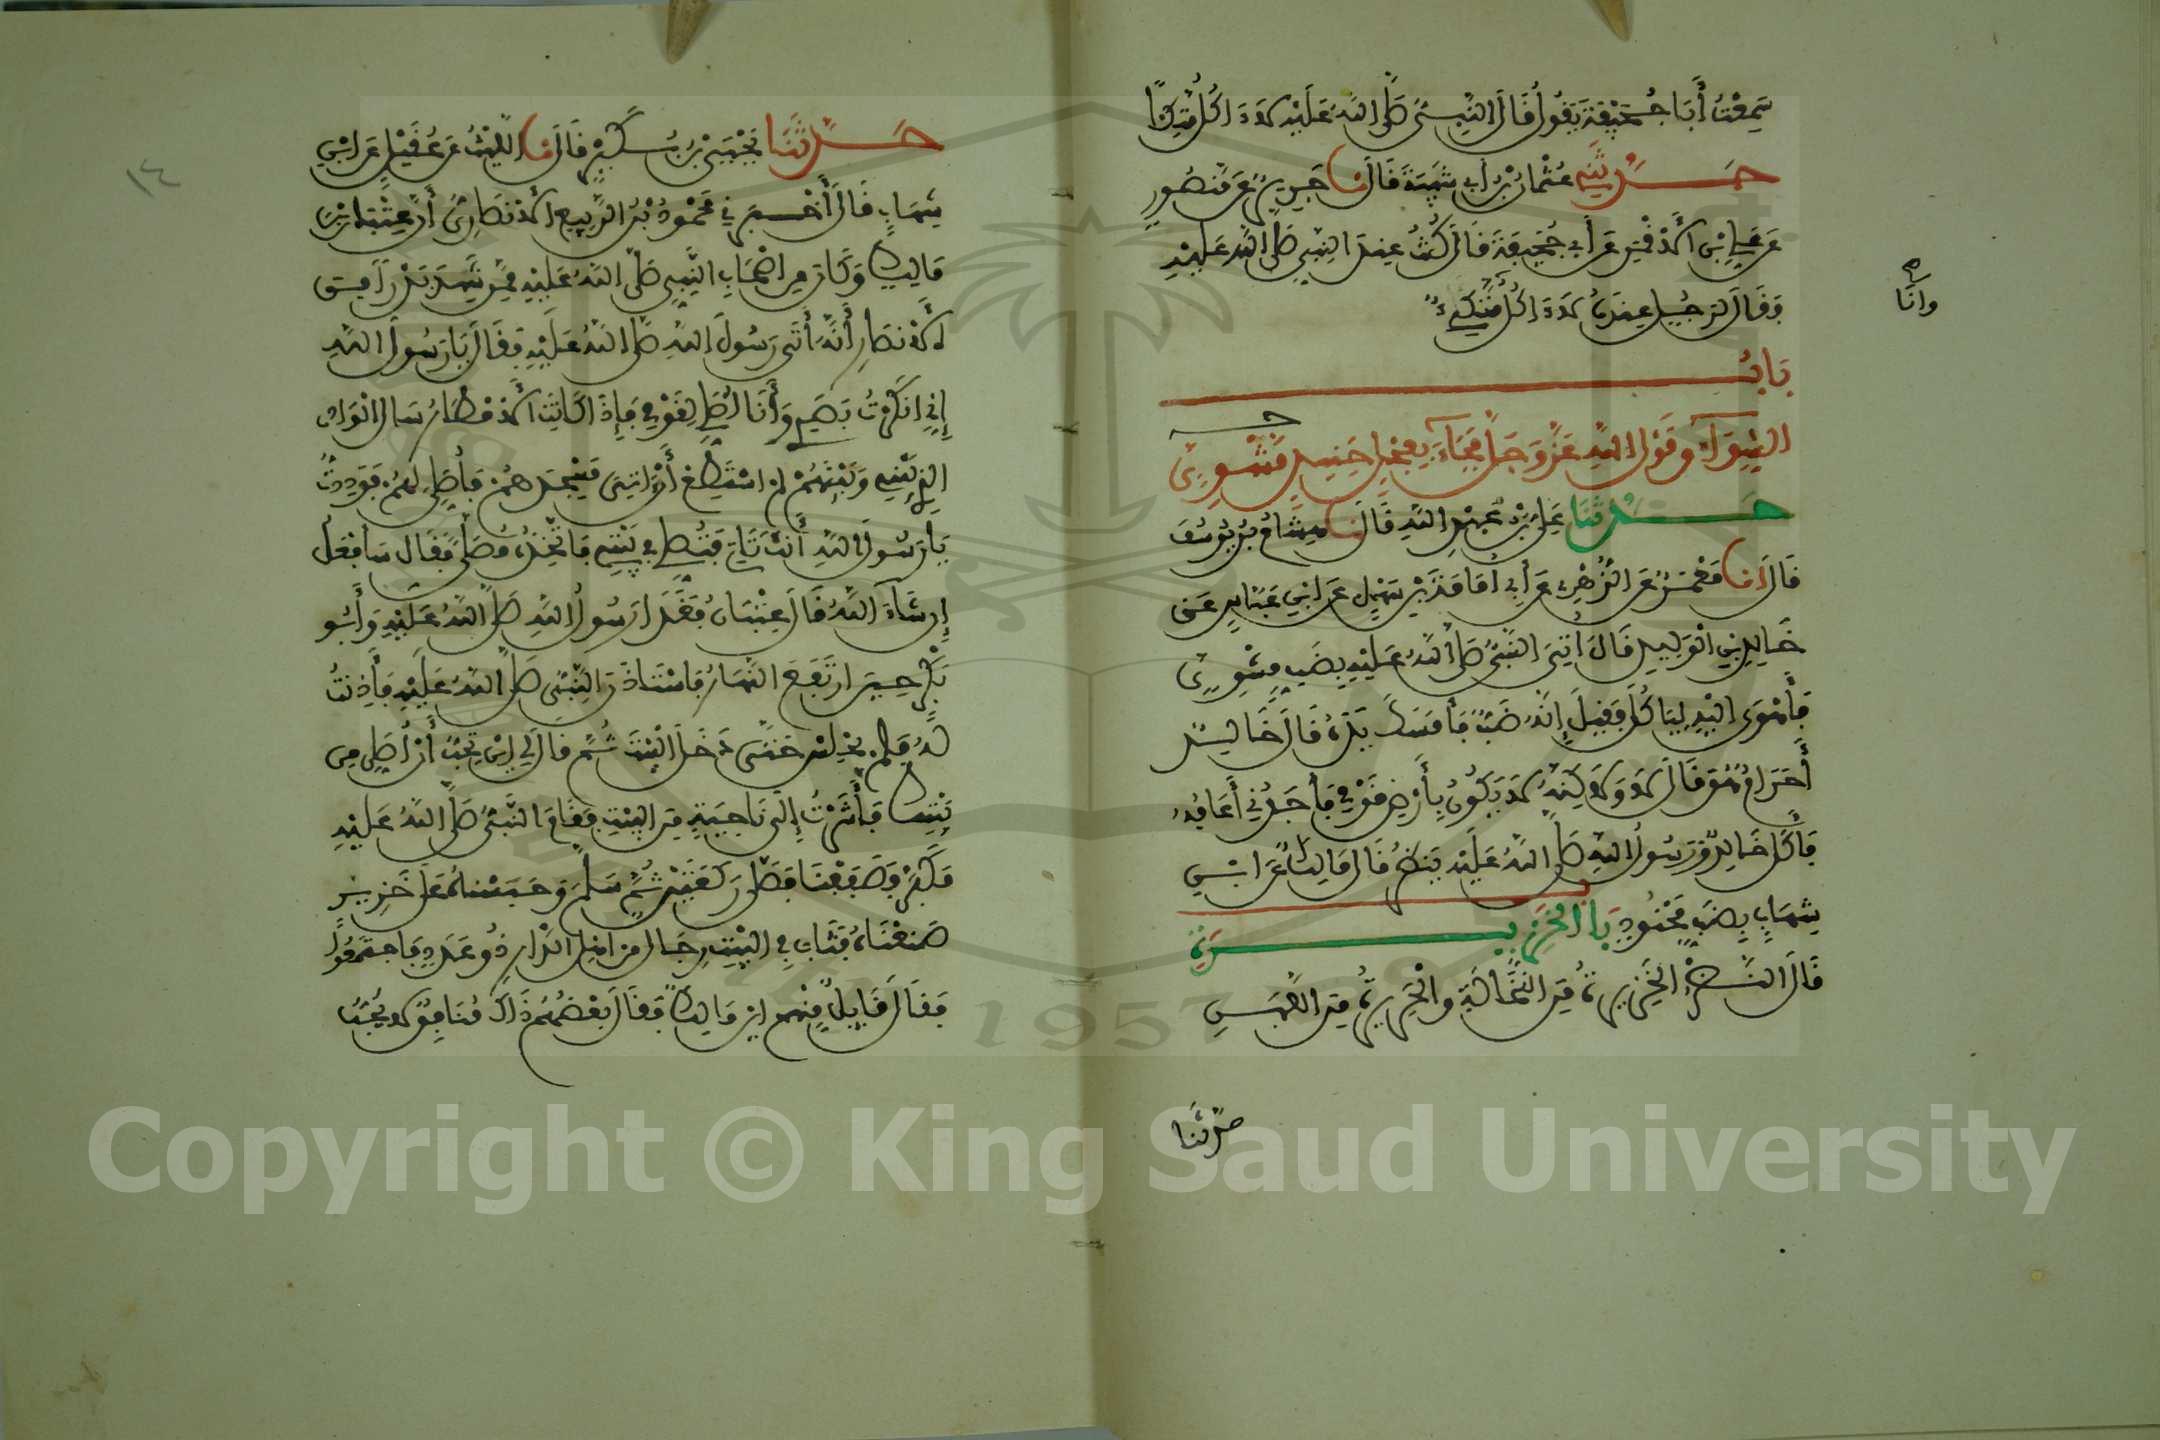 سَمِعْتُ أَبَا جُحَيْفَةَ يَقُولُ قَالَ النَّبِيُّ صَلَّى اللَّهُ عَلَيْهِ لَا ءَاكُلُ مُتَّكِئًا
حَدَّثَنِي عُثْمَانُ بْنُ أَبِي شَيْبَةَ قَالَ نا جَرِيرٌ عَن مَنْصُورٍ
عَن عَلِيِّ بْنِ الْأَقْمَرِ عَن أَبِي جُحَيْفَةَ قَالَ كُنْتُ عِنْدَ النَّبِيِّ صَلَّى اللَّهُ عَلَيْهِ
وَقَالَ لِرَجُلٍ عِنْدَهُ لَا ءَاكُلُ مُتَّكِئًا
وأنَا
بَابُ
الشِّوَاءِ وَقَوْلِ اللَّهِ عَزَّ وَجَلَّ فَجَاءَ بِعِجْلٍ حَنِيذٍ مَشْوِيٍّ
حَدَّثَنَا عَلِيُّ بْنُ عَبْدِ اللَّهِ قَالَ نا هِشَامُ بْنُ يُوسُفَ
قَالَ أنا مَعْمَرٌ عَنِ الزُّهْرِيِّ عَن أَبِي أُمَامَةَ بْنِ سَهْلٍ عَنِ ابْنِ عَبَّاسٍ عَن
خَالِدِ بْنِ الْوَلِيدِ قَالَ أُتِيَ النَّبِيُّ صَلَّى اللَّهُ عَلَيْهِ بِضَبٍّ مَشْوِيٍّ
فَأَهْوَى إِلَيْهِ لِيَاكُلَ فَقِيلَ إِنَّهُ ضَبٌّ فَأَمْسَكَ يَدَهُ فَقَالَ خَالِدٌ
أَحَرَامٌ هُوَ قَالَ لَا وَلَكِنَّهُ لَا يَكُونُ بِأَرْضِ قَوْمِي فَأَجِدُنِي أَعَافُهُ
فَأَكَلَ خَالِدٌ وَرَسُولُ اللَّهِ صَلَّى اللَّهُ عَلَيْهِ يَنْظُرُ قَالَ مَالِكٌ عَنِ ابْنِ
شِهَابٍ بِضَبٍّ مَحْنُوذٍ بَا الْخَزِيرَةِ
قَالَ النَّضْرُ الْخَزِيرَةُ مِنَ النُّخَالَةِ وَالْحَرِيرَةُ مِنَ اللَّبَنِ
حدثنَا
١٤
حَدَّثَنَا يَحْيَى بْنُ بُكَيْرٍ قَالَ نا اللَّيْثُ عَن عُقَيْلٍ عَنِ ابْنِ
شِهَابٍ قَالَ أَخْبَرَنِي مَحْمُودُ بْنُ الرَّبِيعِ الْأَنْصَارِيُّ أَنَّ عِتْبَانَ بْنَ
مَالِكٍ وَكَانَ مِن أَصْحَابِ النَّبِيِّ صَلَّى اللَّهُ عَلَيْهِ مِمَّن شَهِدَ بَدْرًا مِنَ
الْأَنْصَارِ أَنَّهُ أَتَى رَسُولَ اللَّهِ صَلَّى اللَّهُ عَلَيْهِ فَقَالَ يَا رَسُولَ اللَّهِ
إِنِّي أَنْكَرْتُ بَصَرِي وَأَنَا أُصَلِّي لِقَوْمِي فَإِذَا كَانَتِ الْأَمْطَارُ سَالَ الْوَادِي
الَّذِي بَيْنِي وَبَيْنَهُمْ لَمْ أَسْتَطِعْ أَنْ ءَاتِيَ مَسْجِدَهُمْ فَأُصَلِّيَ لَهُمْ فَوَدِدْتُ
يَا رَسُولَ اللَّهِ أَنَّكَ تَاتِي فَتُصَلِّي فِي بَيْتِي فَأَتَّخِذُهُ مُصَلًّى فَقَالَ سَأَفْعَلُ
إِن شَاءَ اللَّهُ قَالَ عِتْبَانُ فَغَدَا رَسُولُ اللَّهِ صَلَّى اللَّهُ عَلَيْهِ وَأَبُو
بَكْرٍ حِينَ ارْتَفَعَ النَّهَارُ فَاسْتَاذَنَ النَّبِيُّ صَلَّى اللَّهُ عَلَيْهِ فَأَذِنْتُ
لَهُ فَلَمْ يَجْلِسْ حَتَّى دَخَلَ الْبَيْتَ ثُمَّ قَالَ لِي أَيْنَ تُحِبُّ أَنْ أُصَلِّيَ مِن
بَيْتِكَ فَأَشَرْتُ إِلَى نَاحِيَةٍ مِنَ الْبَيْتِ فَقَامَ النَّبِيُّ صَلَّى اللَّهُ عَلَيْهِ
فَكَبَّرَ فَصَفَفْنَا فَصَلَّى رَكْعَتَيْنِ ثُمَّ سَلَّمَ وَحَبَسْنَاهُ عَلَى خَزِيرٍ
صَنَعْنَاهُ فَثَابَ فِي الْبَيْتِ رِجَالٌ مِن أَهْلِ الدَّارِ ذُو عَدَدٍ فَاجْتَمَعُوا
فَقَالَ قَايِلٌ مِنْهُمْ أَيْنَ مَالِكٌ فَقَالَ بَعْضُهُمْ ذَاكَ مُنَافِقٌ لَا يُحِبُّ
Copyright © King Saud University
1957